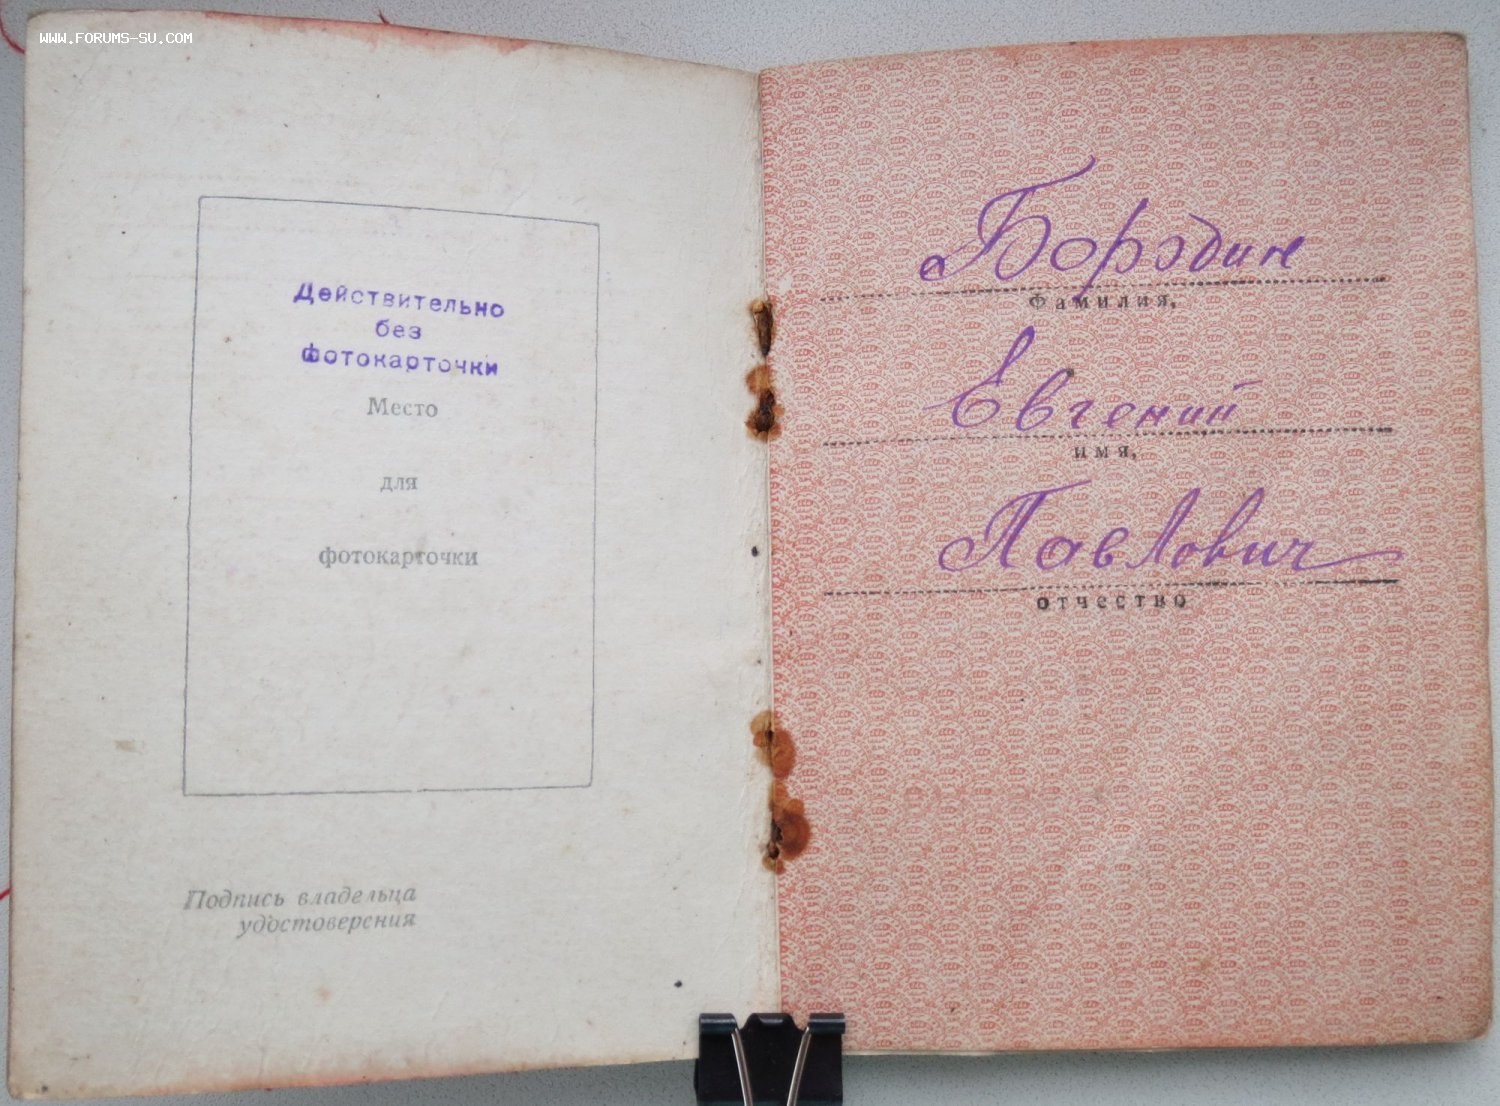 WWW.FORUMS-SU.COM
Действительно
без
фотокарточки
Место
для
фотокарточки
Подпись владельца
удостоверения
Бородин
фамилия,
Евгений
имя,
Павлович
отчество